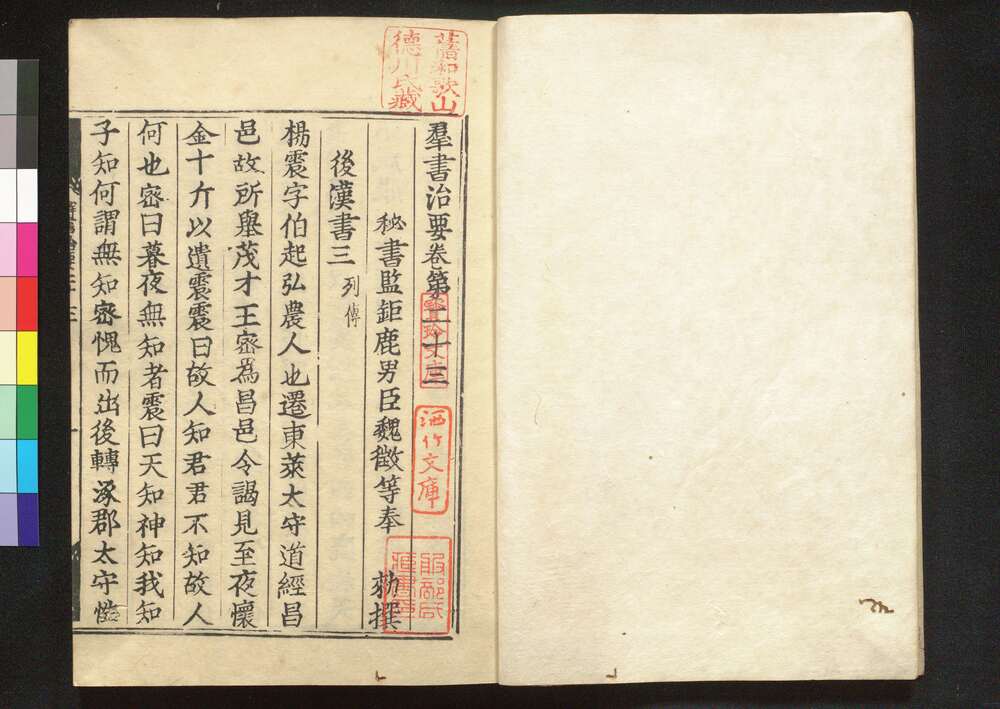 羣書治要卷第二十三
秘書監鉅鹿男臣魏徵等奉 勑撰
後漢書三 列傳
楊震字伯起弘農人也遷東萊太守道經昌
邑故所舉茂才王密為昌邑令謁見至夜懷
金十斤以遺震震曰故人知君君不知故人
何也密曰暮夜無知者震曰天知神知我知
子知何謂無知密愧而出後轉涿郡太守性
舊和歌山
德川氏藏
寶玲文庫
洒竹文庫
服部氏